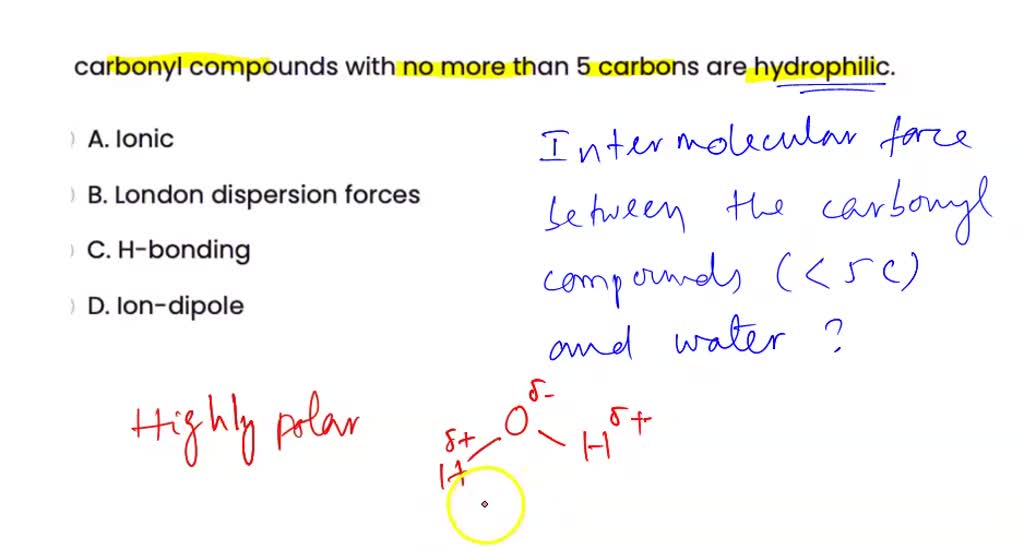 carbonyl compounds with no more than 5 carbons are hydrophilic.
A. Ionic
B. London dispersion forces
C. H-bonding
D. Ion-dipole
Intermolecular force
between the carbonyl
compounds (<5C)
and water ?
Highly polar
δ-
O
δ+
δ+
H
H